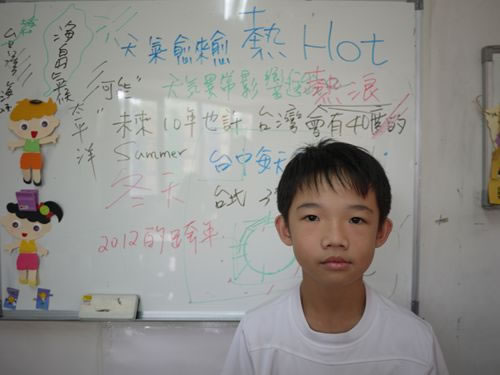 天氣愈來愈熱 Hot
可能"天氣異常影響 熱浪
"未來10年也許台灣會有40度的
Summer 台中每天
冬天 台式
2012的跨年
台灣海
海島氣候
太平洋